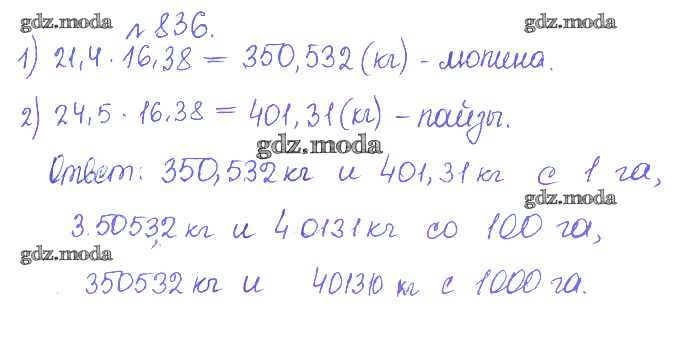 gdz.moda № 836. gdz.moda
1) 21,4 · 16,38 = 350,532 (кг) - люпина.
2) 24,5 · 16,38 = 401,31 (кг) - пайзы.
gdz.moda
Ответ: 350,532 кг и 401,31 кг с 1 га,
gdz.moda
35053,2 кг и 40131 кг со 100 га,
gdz.moda
350532 кг и 401310 кг с 1000 га.